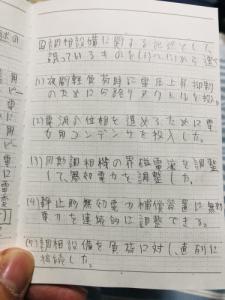 調相設備に関する記述として
誤っているものを(1)〜(5)から選べ
(1) 夜間軽負荷時に電圧上昇抑制
のために分路リアクトルを投入
(2) 電流の位相を進めるために電
力用コンデンサを投入した。
(3) 同期調相機の界磁電流を調整
して、無効電力を調整した。
(4) 静止形無効電力補償装置は無効
電力を連続的に調整できる。
(5) 調相設備を負荷に対し、直列に
接続した。